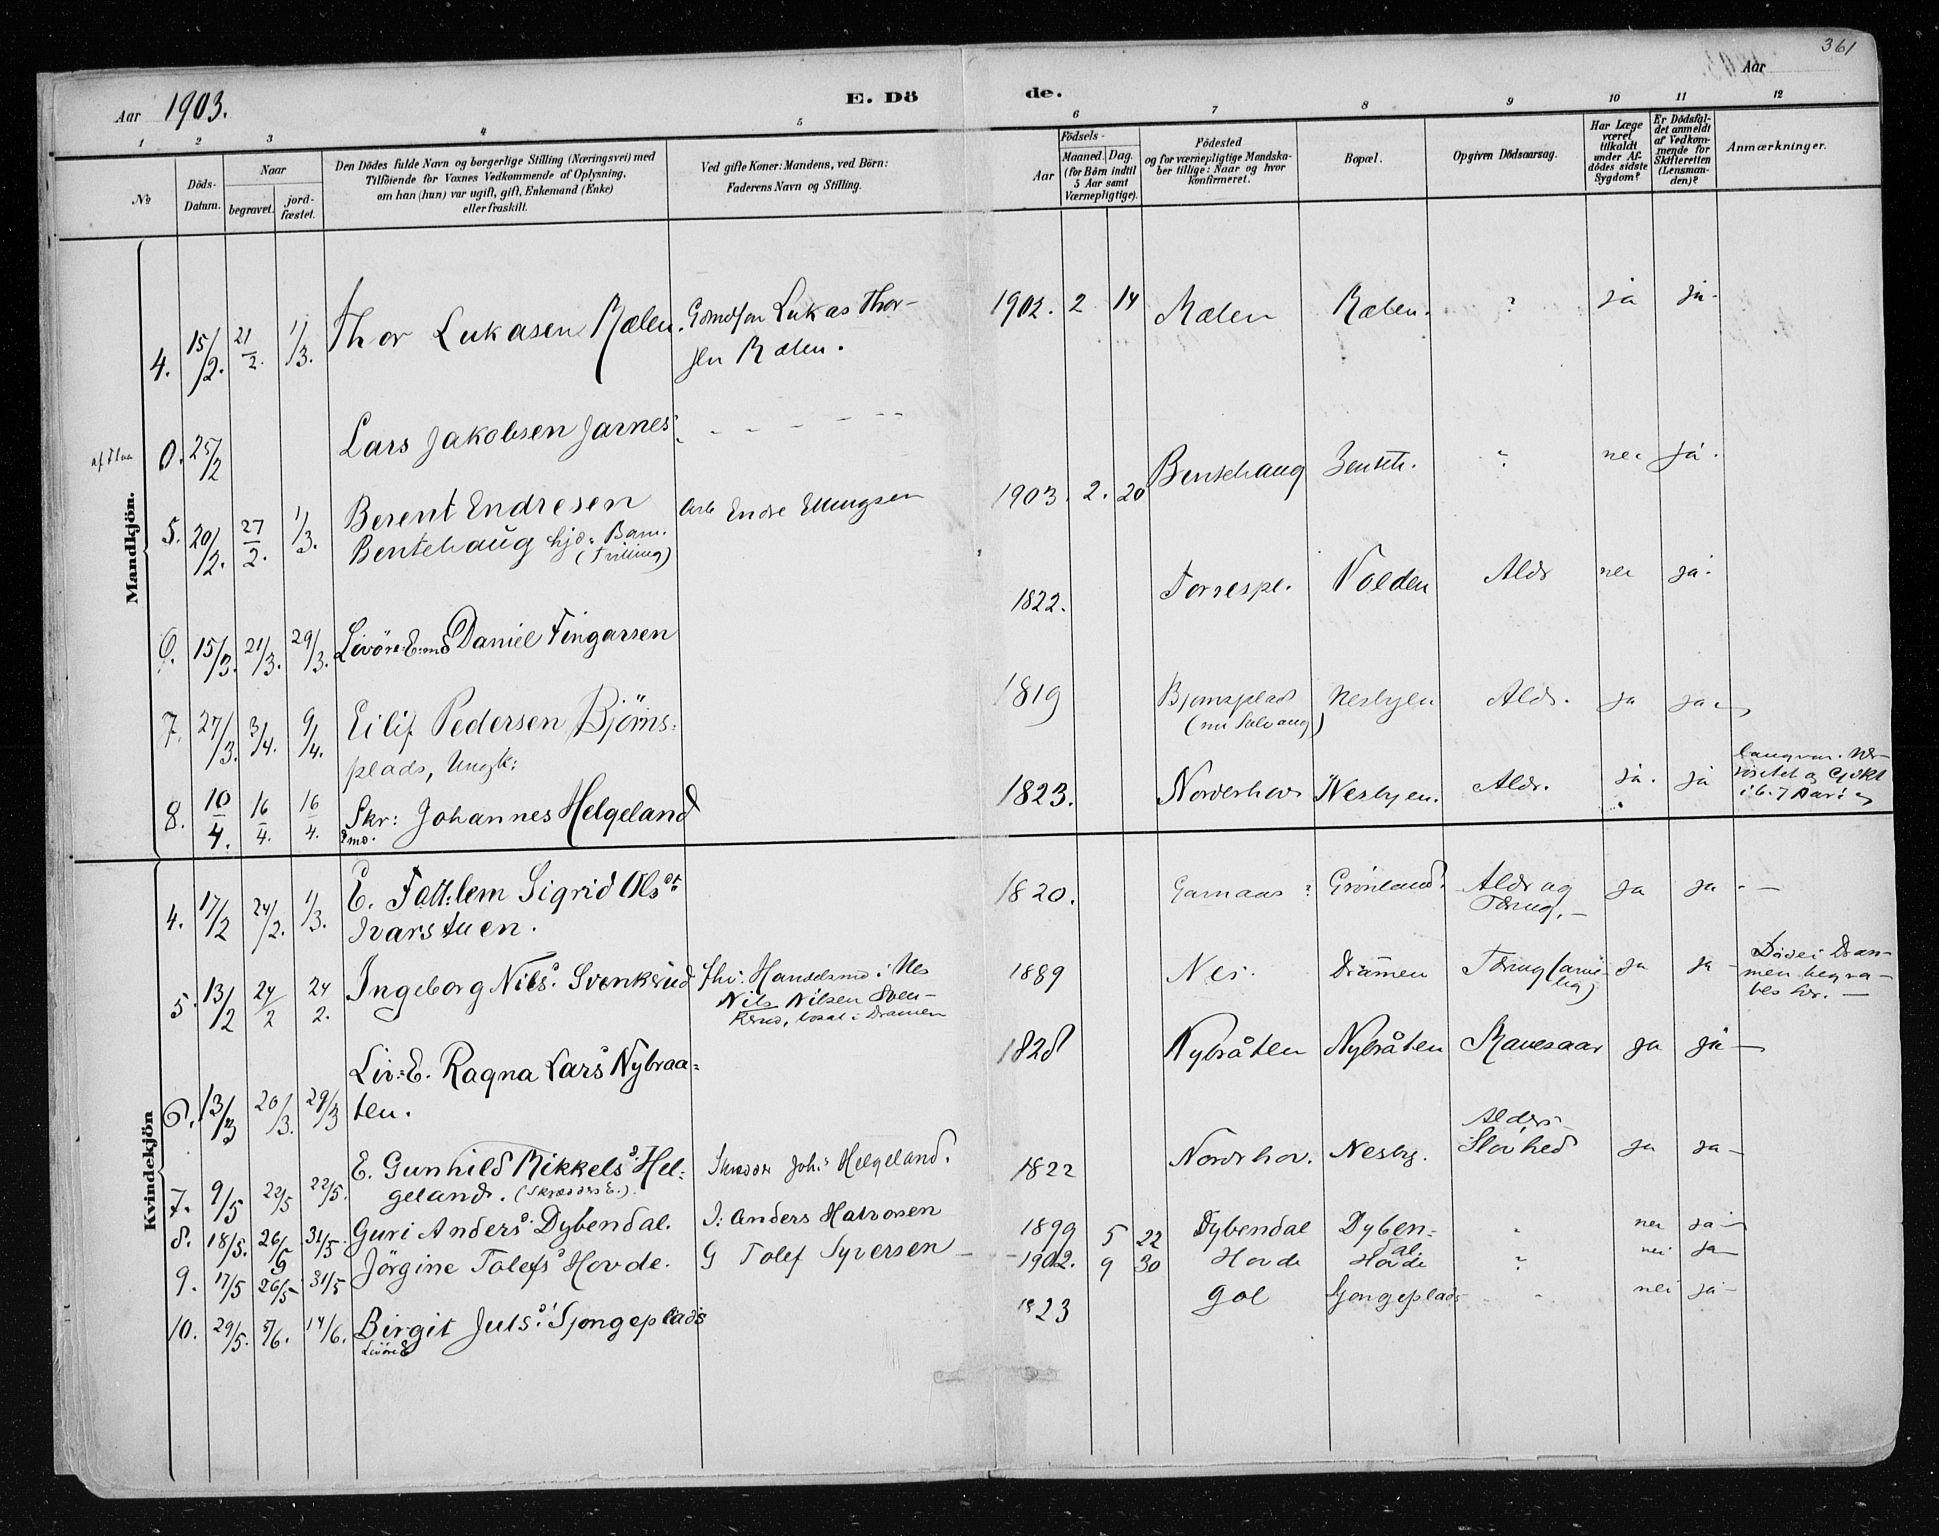 361
Aar 1903.
E. Dö
de.
Aar
1
2
3
4
5
6
7
8
9
10
11
12
No
Döds-
Datum.
Naar
begravet.
jord-
fæstet.
Den Dödes fulde Navn og borgerlige Stilling (Næringsvei) med
Tilföiende for Voxnes Vedkommende af Oplysning,
om han (hun) var ugift, gift, Enkemand (Enke)
eller fraskilt.
Ved gifte Koner: Mandens, ved Börn:
Faderens Navn og Stilling.
Födsels-
Aar
Maaned. Dag.
(for Börn indtil
5 Aar samt
Værnepligtige).
Födested
og for værnepligtige Mandska-
ber tillige: Naar og hvor
konfirmeret.
Bopæl.
Opgiven Dödsaarsag.
Har Læge
været
tilkaldt
under Af-
dödes sidste
Sygdom?
Er Dödsfal-
det anmeldt
af Vedkom-
mende for
Skifteretten
(Lensman-
den)?
Anmærkninger.
Mandkjön.
4. 15/2. 21/2. 1/3. Thor Lukasen Rælen. Lukas Thor-
sen Rælen. 1902. 2 14 Rælen Rælen. ? ja ja.
0. 25/2 Lars Jakobsen Jarnes
5. 20/2. 27/2. 1/3. Berent Endresen Endre Ellingsen 1903. 2. 20 Bentehaug ? nei ja.
Bentehaug Barn.
(Tvilling)
6. 15/3. 21/3. 29/3. Livöre. E:md Daniel Fingarsen 1822. Torrespl. Volden Aldr nei ja.
7. 27/3. 3/4. 9/4. Eilif Pedersen Björns: 1819 Bjornsplads Nesbyen Aldr. ja ja
plads, Ungk:
8. 10/4. 16/4. 16/4. Skr: Johannes Helgeland 1823. Norderhov Nesbyen. Aldr. ja. ja
Emd.
i 6-7 Aar
Kvindekjön
4. 17/2 24/2. 1/3. E. Fattiglem Sigrid Olsdt 1820. Garnaas ? Grönland. Aldr og ja ja. —
Ivarstuen.
5. 13/2 24/2 24/2. Ingeborg Nilsd. Svenkerud Handelsmd i Nes 1889 Nes. Drammen ja ja Död i Dram-
Nils Nilsen Sven- men begra-
kerud, bosat i Dramen ves her. —
6. 13/3 20/3. 29/3 Liv:E. Ragna Larsd Nybraa- 1828 Nybråten Nybråten ja ja —
ten.
7. 9/5 22/5 22/5. E. Gunhild Mikkelsd. Hel- Skræder Joh.s Helgeland. 1822 Norderhov. Nesby. Alders-
Slövhed ja ja —
geland. (Skræders E.).
8. 18/5. 26/5 31/5. Guri Andersd. Dybendal. I: Anders Halvorsen 1899 5 22 Dybendal Dyben-
dal. nei ja —
9. 17/5 26/5 31/5 Jörgine Tolefsd Hovde. G Tolef Syversen — 1902. 9 30 Hovde Hovde ? nei ja —
10. 29/5. 5/6. 14/6. Birgit Julsd. Sjongeplads 1823 Gol Sjongeplads nei ja —
Livöre E